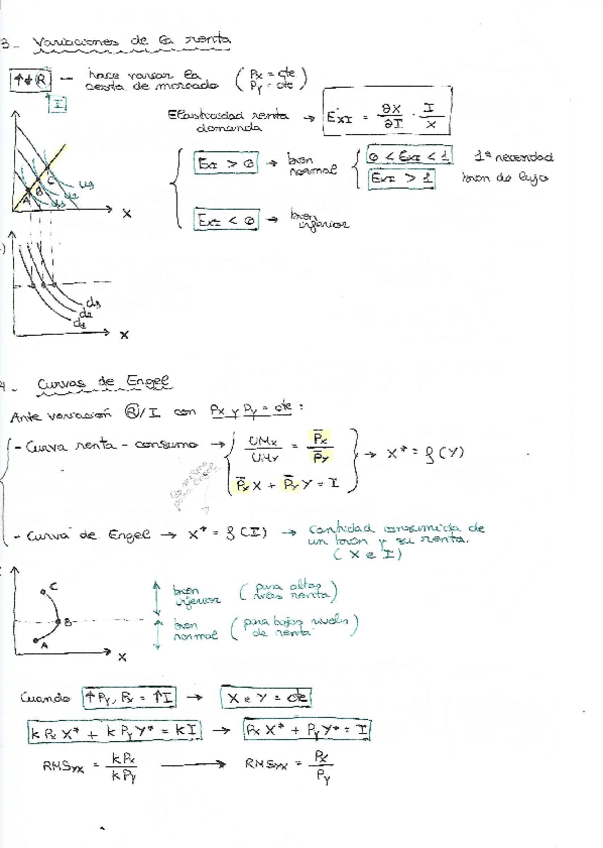 3- Variaciones de la renta
↑↓ R — hace variar la cesta de mercado ( Px = cte
Py = cte )
I
Elasticidad renta demanda → EXI = ∂X/∂I · I/X
EXI > 0 → bien normal { 0 < EXI < 1 1ª necesidad
EXI > 1 bien de lujo
EXI < 0 → bien inferior
A B C U3 U2 U1
X
d3
d2
d1
X
4- Curvas de Engel
Ante variación R/I con Px y Py = cte:
- Curva renta - consumo → { UMx/UMy = P̄x/P̄y
P̄x X + P̄y Y = I } → X* = f(Y)
- Curva de Engel → X* = f(I) → cantidad consumida de
un bien y su renta.
( X e I )
C
B
A
X
bien inferior ( para altos niveles renta)
bien normal (para bajos niveles de renta)
Cuando ↑Py, Px = ↑I → X e Y = cte
k Px X* + k Py Y* = k I → Px X* + Py Y* = I
RMSyx = kPx/kPy → RMSyx = Px/Py